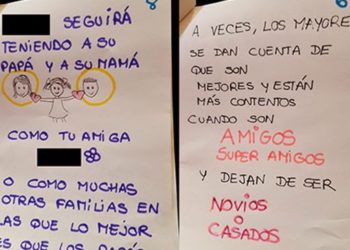 SEGUIRÁ
TENIENDO A SU
PAPÁ Y A SU MAMÁ
COMO TU AMIGA
O COMO MUCHAS
OTRAS FAMILIAS EN
LAS QUE LO MEJOR
ES QUE LOS
A VECES, LOS MAYORE
SE DAN CUENTA DE
QUE SON
MEJORES Y ESTÁN
MÁS CONTENTOS
CUANDO SON
AMIGOS
SUPER AMIGOS
Y DEJAN DE SER
NOVIOS
O
CASADOS